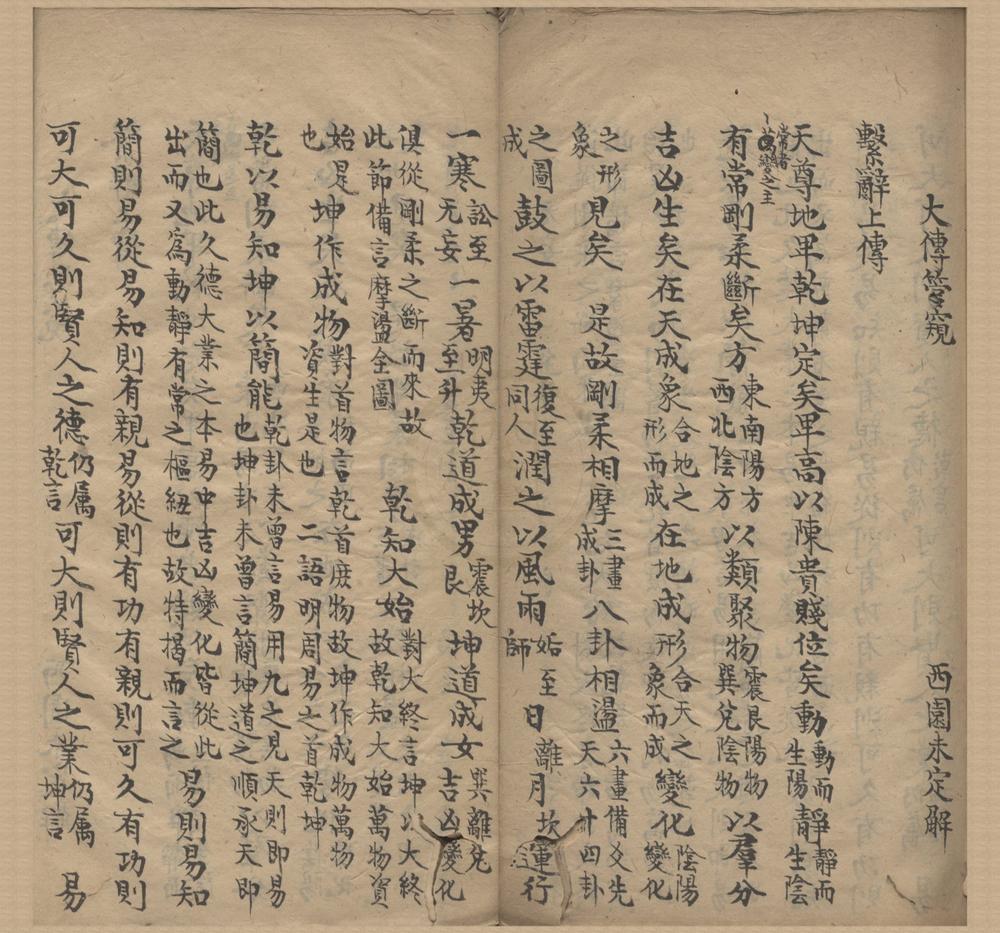 大傳管窺　西園未定解
繫辭上傳
天尊地卑乾坤定矣卑高以陳貴賤位矣動動而生陽靜靜而生陰
常者萬變之主
有常剛柔斷矣方東南陽方西北陰方以類聚物震艮陽物巽兌陰物以羣分
吉凶生矣在天成象合地之形而成在地成形合天之象而成變化陰陽變化
之形象見矣　是故剛柔相摩三畫成卦八卦相盪六畫備爻先天六十四卦
之圖成鼓之以雷霆復至同人潤之以風雨姤至師日離月坎運行
一寒訟至无妄一暑明夷至升乾道成男震坎艮坤道成女巽離兌吉凶變化
俱從剛柔之斷而來故此節備言摩盪全圖　乾知大始對大終言坤以大終故乾知大始萬物資
始是也坤作成物對首物言乾首庶物故坤作成物萬物資生是也　二語明周易之首乾坤
乾以易知坤以簡能乾卦未曾言易用九之見天則即易也坤卦未曾言簡坤道之順承天即
簡也此久德大業之本易中吉凶變化皆從此出而又為動靜有常之樞紐也故特揭而言之　易則易知
簡則易從易知則有親易從則有功有親則可久有功則
可大可久則賢人之德仍属乾言可大則賢人之業仍属坤言　易